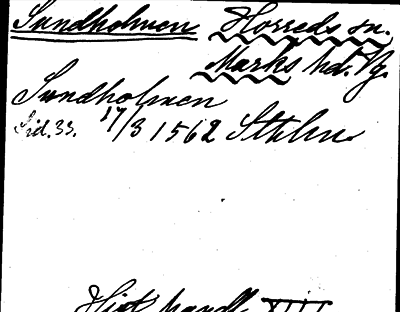 Sundholmen Horreds sn.
Marks hd. Vg.
Sundholmen
Sid. 33. 17/3 1562 Sthlm
Hist handl. XIII